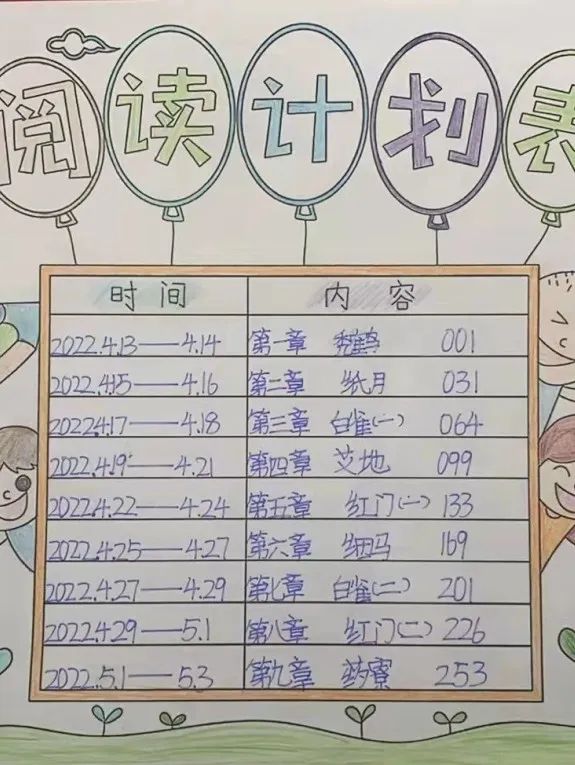 阅读计划表
时间 内容
2022.4.13——4.14 第一章 秃鹤 001
2022.4.15——4.16 第二章 纸月 031
2022.4.17——4.18 第三章 白雀(一) 064
2022.4.19——4.21 第四章 艾地 099
2022.4.22——4.24 第五章 红门(一) 133
2022.4.25——4.27 第六章 细马 169
2022.4.27——4.29 第七章 白雀(二) 201
2022.4.29——5.1 第八章 红门(二) 226
2022.5.1——5.3 第九章 药寮 253